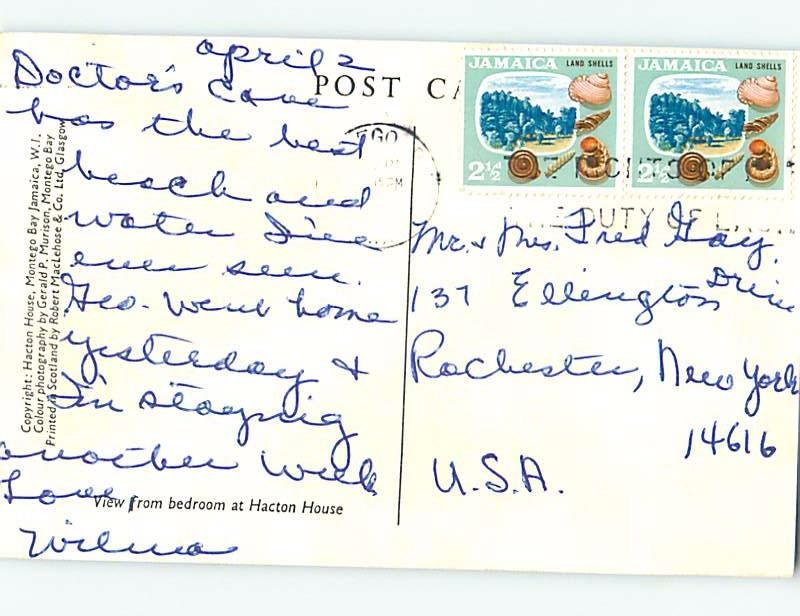 april 2
Doctor's Cave
has the best
beach and
water I've
ever seen.
Geo. went home
yesterday &
I'm staying
another week
Love,
Wilma
POST CA
JAMAICA LAND SHELLS
2½
JAMAICA LAND SHELLS
2½
EGO
PM
THE DUTY OF
Mr. & Mrs. Fred Gay.
137 Ellington Drive
Rochester, New York
14616
U.S.A.
View from bedroom at Hacton House
Copyright: Hacton House, Montego Bay Jamaica, W.I.
Colour photography by Gerald P. Murison, Montego Bay
Printed in Scotland by Robert MacLehose & Co. Ltd, Glasgow